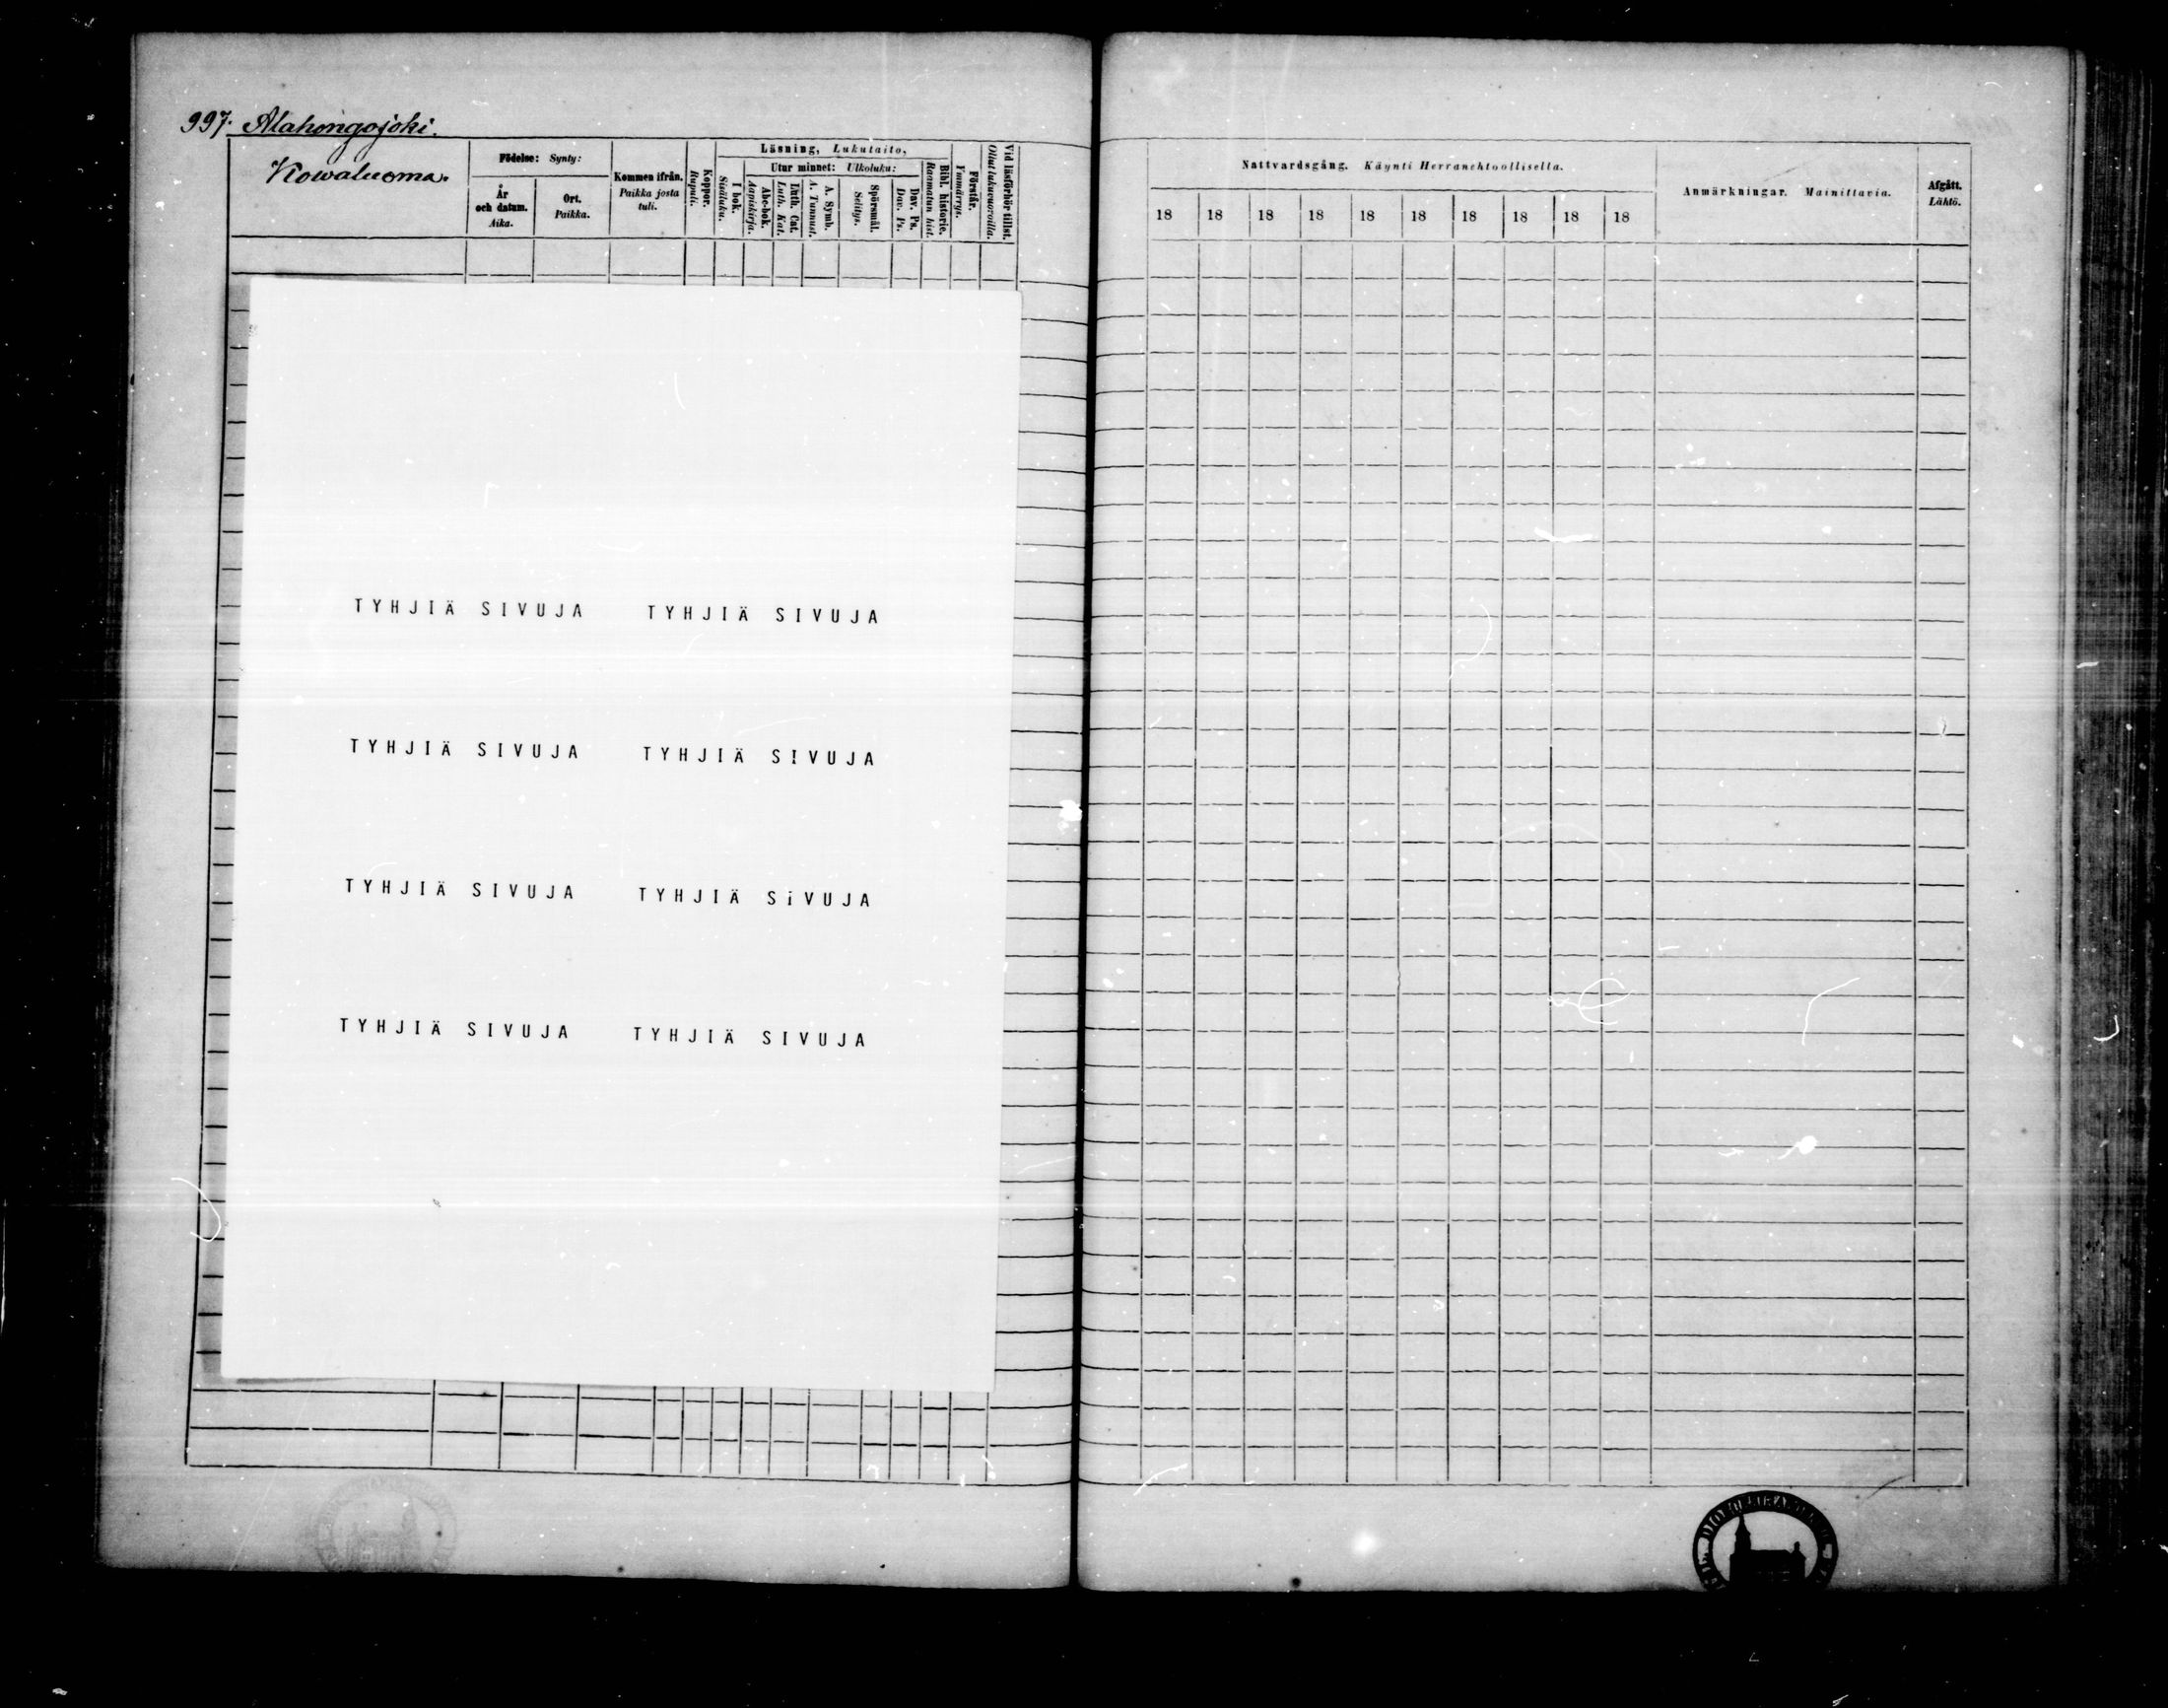 997. Alahongojoki.
Kowaluoma.
Födelse: Synty:
År och datum. Aika.
Ort. Paikka.
Kommen ifrån. Paikka josta tuli.
Koppor. Rupuli.
Läsning, Lukutaito,
I bok. Sisäluku.
Utur minnet: Ulkoluku:
Abc-bok. Aapiskirja.
Luth. Cat. Luth. Kat.
A. Symb. A. Tunnust.
Spörsmål. Selitys.
Dav. Ps. Dav. Ps.
Bibl. historie. Raamatun hist.
Förstår. Ymmärrys.
Vid läsförhör tillst. Ollut lukuvuoroilla.
Nattvardsgång. Käynti Herranehtoollisella.
18 18 18 18 18 18 18 18 18 18
Anmärkningar. Mainittavia.
Afgått. Lähtö.
TYHJIÄ SIVUJA TYHJIÄ SIVUJA
TYHJIÄ SIVUJA TYHJIÄ SIVUJA
TYHJIÄ SIVUJA TYHJIÄ SIVUJA
TYHJIÄ SIVUJA TYHJIÄ SIVUJA